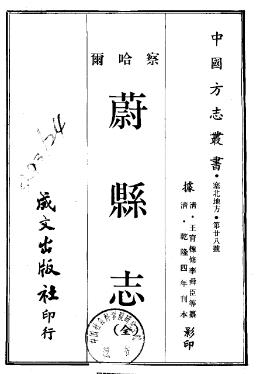 中國方志叢書·塞北地方·第廿八號
據清·王育榑修李舜臣等纂
清·乾隆四年刊本影印
察哈爾
蔚縣志
(全)
成文出版社印行